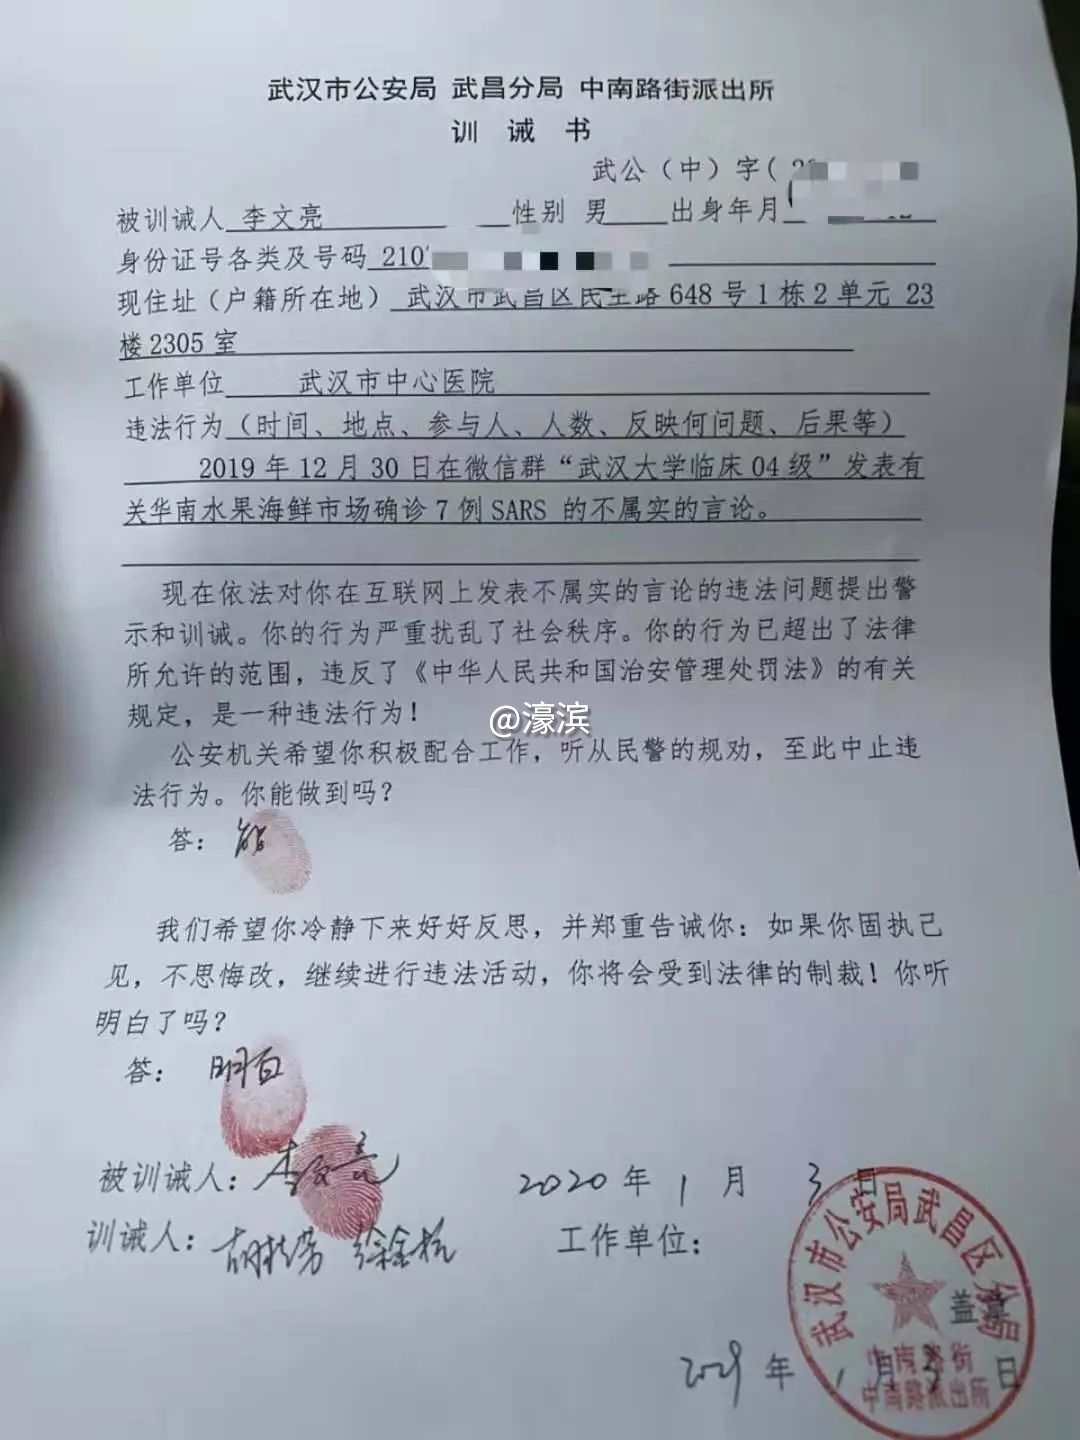 武汉市公安局 武昌分局 中南路街派出所
训 诫 书
武公（中）字（
被训诫人 李文亮 性别 男 出身年月
身份证号各类及号码 210
现住址（户籍所在地） 武汉市武昌区民主路 648 号 1 栋 2 单元 23
楼 2305 室
工作单位 武汉市中心医院
违法行为（时间、地点、参与人、人数、反映何问题、后果等）
2019 年 12 月 30 日在微信群“武汉大学临床 04 级”发表有
关华南水果海鲜市场确诊 7 例 SARS 的不属实的言论。
现在依法对你在互联网上发表不属实的言论的违法问题提出警
示和训诫。你的行为严重扰乱了社会秩序。你的行为已超出了法律
所允许的范围，违反了《中华人民共和国治安管理处罚法》的有关
规定，是一种违法行为！
@濠滨
公安机关希望你积极配合工作，听从民警的规劝，至此中止违
法行为。你能做到吗？
答： 能
我们希望你冷静下来好好反思，并郑重告诫你：如果你固执己
见，不思悔改，继续进行违法活动，你将会受到法律的制裁！你听
明白了吗？
答： 明白
被训诫人：李文亮 2020 年 1 月 3 日
训诫人： 工作单位：
武汉市公安局武昌区分局
盖章
中南路街
中南路派出所
年 1 月 3 日